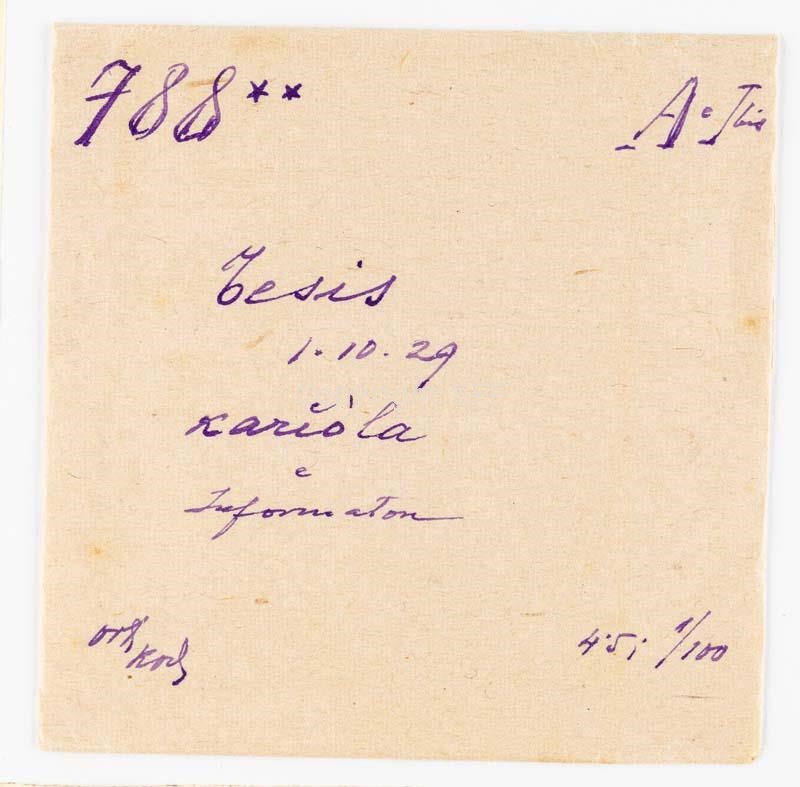 788** A. I bis
Tesis
1.10.29
Karič̀ola
e
Informaton
orth
Koch
4·5; 1/100